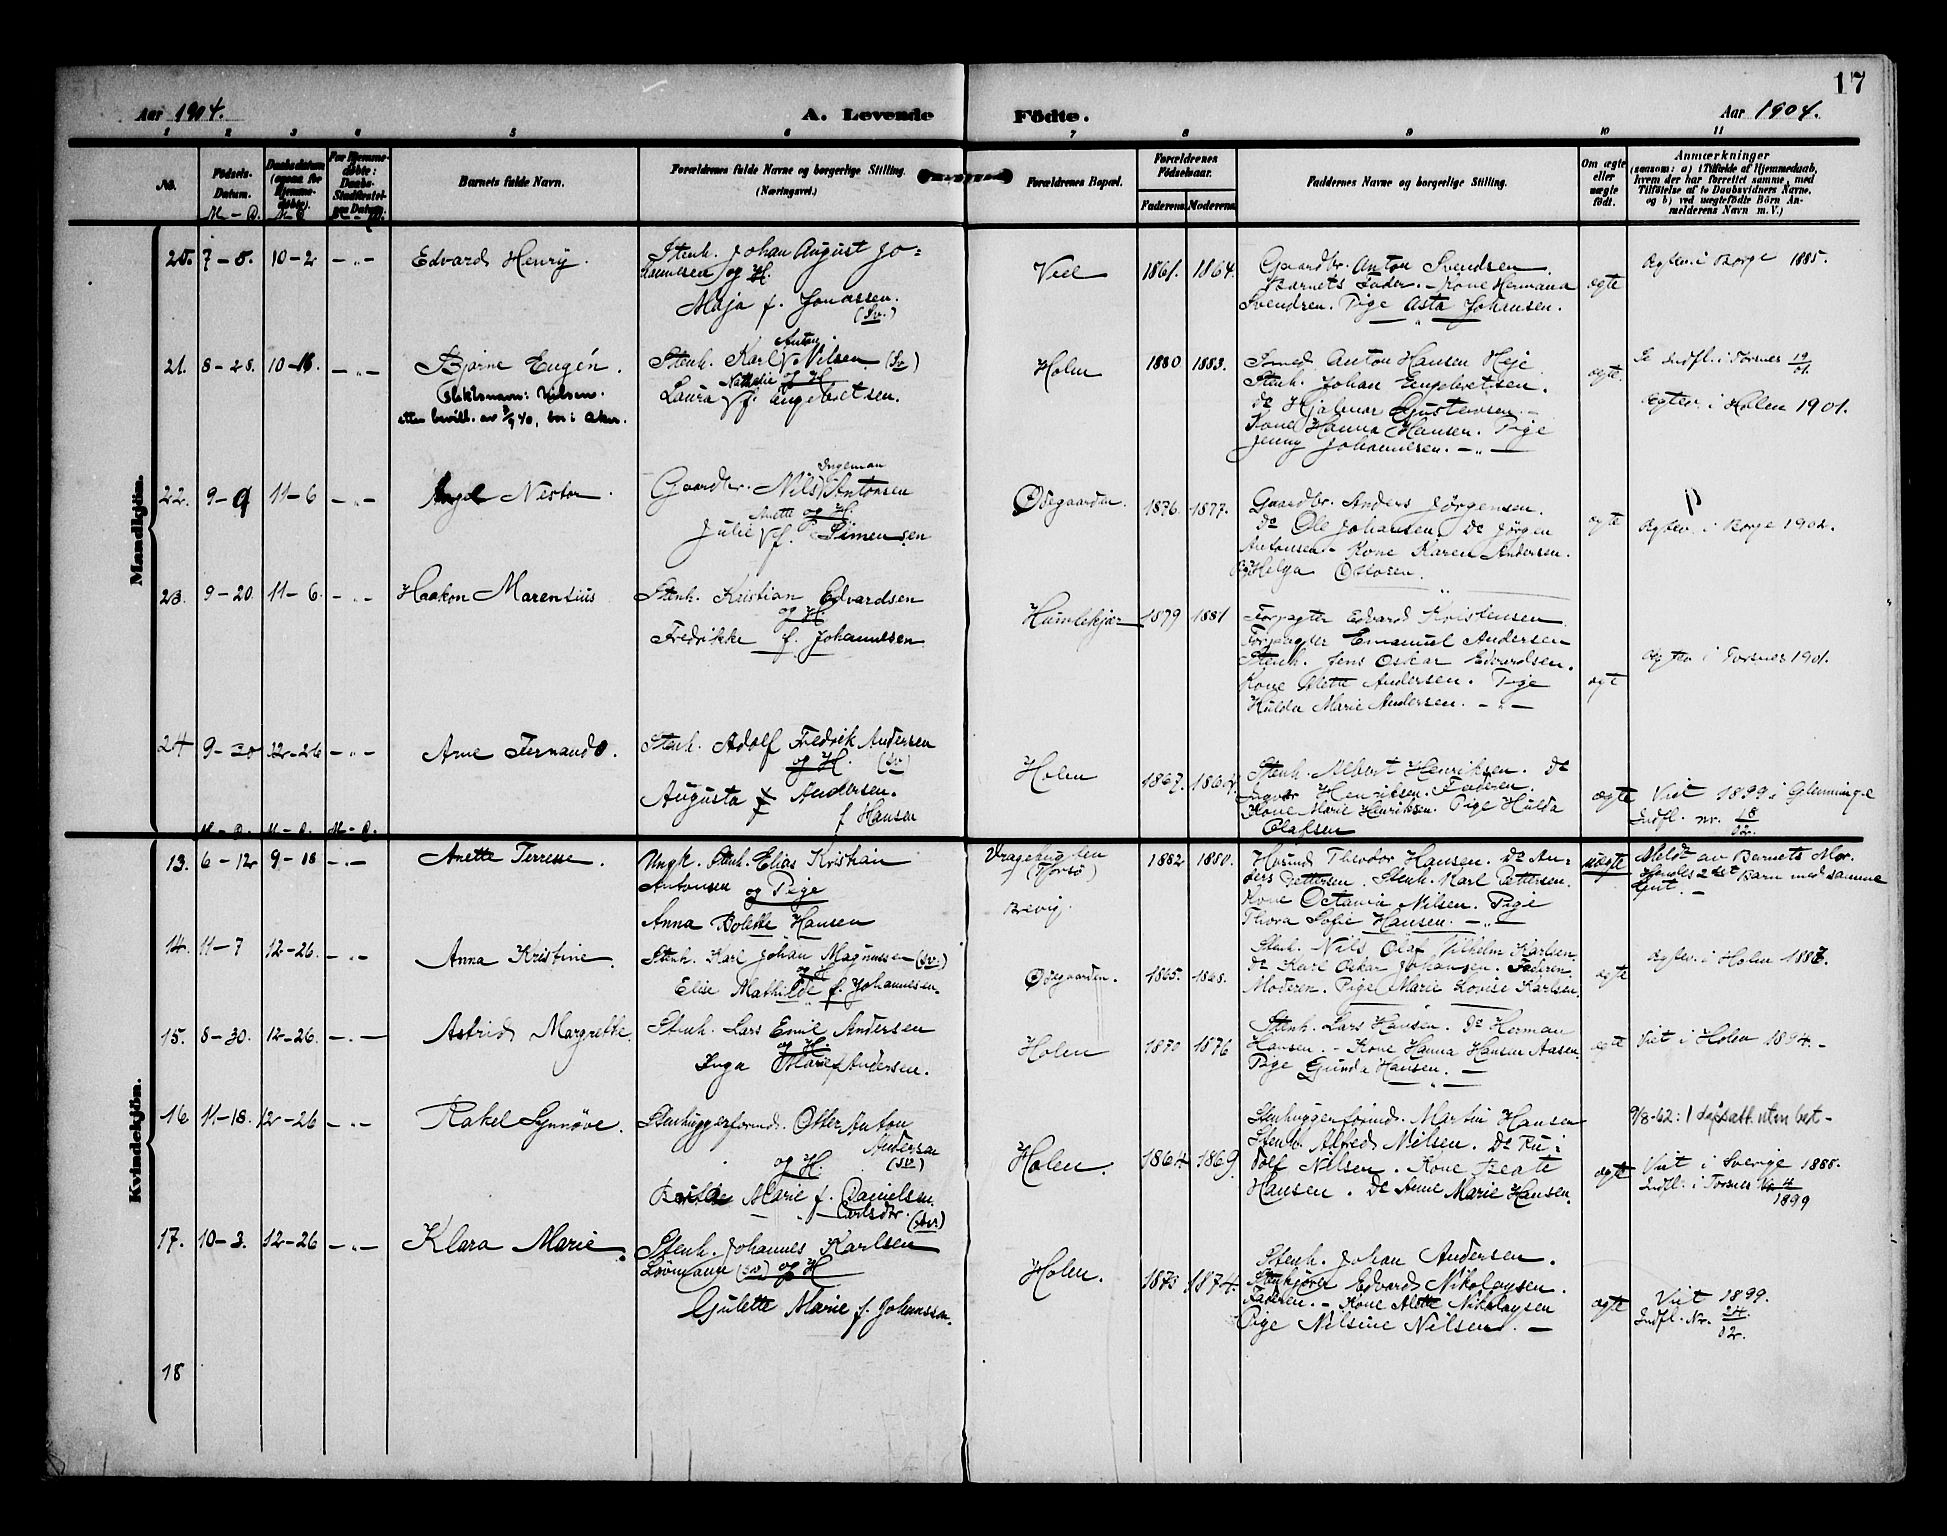 17
Aar 1904.
A. Levende Födte.
Aar 1904.
1 2 3 4 5 6 7 8 9 10 11
No.
Födsels-
Datum.
M – D.
Daabsdatum
(ogsaa for
Hjemme-
döbte).
M D
For Hjemme-
döbte:
Daabs-
Stadfæstel-
sens Datum.
Barnets fulde Navn.
Forældrenes fulde Navne og borgerlige Stilling.
(Næringsvei.)
Forældrenes Bopæl.
Forældrenes
Födselsaar.
Faderens Moderens
Faddernes Navne og borgerlige Stilling.
Om ægte
eller
uægte
födt.
Anmærkninger
(saasom: a) i Tilfælde af Hjemmedaab,
hvem der har forrettet samme, med
Tilföielse af to Daabsvidners Navne,
og b) ved uægtefödte Börn An-
melderens Navn m. V.)
Mandkjön.
20. 7 – 5. 10 – 2 – „ –
Edvard Henry.
Stenh. Johan August Jo-
hannesen og H.
Maja f. Jonassen.
(Sv.)
Viel
1861. 1864.
Gaardbr. Anton Svendsen.
Barnets Fader. – Kone Hermana
Svendsen. Pige Asta Johansen.
ægte
Ægtev. i Borge 1885.
21. 8 – 28. 10 – 16. – „ –
Bjarne Eugén.
Slektsnavn: Nilsen.
etter bevill. av 5/9 40, bor i Aker.
Anton
Stenh. Karl V Nilsen (Sv)
Nathalie og H
Laura V f. Engebretsen.
Holm
1880 1883.
Smed Anton Hansen Heje
Stenh. Johan Engebretsen.
do Hjalmar Gustavsen. –
Kone Hanna Hansen. Pige
Jenny Johannesen. – „ –
ægte.
Se Indfl. i Torsnes 19/01.
Ægtev. i Holen 1901.
22. 9 – 9 11 – 6 – „ –
Nestor.
Ingeman
Gaardbr. Nils V Antonsen
Anette og H
Julie V f. Simensen
Ødegaarden.
1876. 1877.
Gaardbr. Anders Jörgensen.
Do Ole Johansen, Do Jörgen
Antonsen – Kone Karen Andersen.
Pg Helga Ottosen.
ægte
Ægtev. i Borge 1902.
23. 9 – 20. 11 – 6. – „ –
Haakon Marensius
Stenh. Kristian Edvardsen
og H
Fredrikke f. Johannesen
Humlekjær
1879 1881
Forpagter Edvard Kristensen.
Forpagter Emanuel Andersen –
Stenh. Jens Oskar Edvardsen.
Kone Alette Andersen. Pige
Hulda Marie Andersen. – „ –
ægte
Ægtev. i Torsnes 1901.
24 9 – 20 12 – 26 – „ –
Arne Fernando.
Stenh. Adolf Fredrik Andersen
og H. (Sv)
Augusta f Andersen.
f Hansen
Holen
1867. 1864.
Stenh. Albert Henriksen. Do
Ingvar Henriksen. Faderen.
Kone Marie Henriksen. Pige Hulda
Olafsen
ægte
Viet 1899 i Glemminge
Indfl. nr. 18/02.
Kvindekjön.
M – D. M – D. M – D.
13. 6 – 12 9 – 18 – „ –
Anette Terrese.
Ungk. Stenh. Elias Kristian
Antonsen og Pige
Anna Bolette Hansen
(Thorsø)
Brevig.
1882 1880.
Husmd Theodor Hansen. Do An-
ders Pettersen. Stenh. Karl Pettersen.
Kone Octavia Nilsen. Pige
Thora Sofie Hansen. – „ –
uægte
Meldt av Barnets Mor.
Hendes 2det Barn med samme
Gut. –
14. 11 – 7 12 – 26. – „ –
Anna Kristine.
Stenh. Karl Johan Magnussen (Sv.)
og H
Elise Mathilde f. Johannesen.
Ødegaarden.
1865. 1868.
Stenh. Nils Olaf Vilhelm Karlsen.
do Karl Oskar Johansen. Faderen.
Moderen. Pige Marie Lovise Karlsen.
ægte
Ægtev. i Holen
15. 8 – 30. 12 – 26. – „ –
Astrid Margrethe.
Stenh. Lars Emil Andersen
og H.
Inga Marie f Andersen.
Holen
1870 1876
Stenh. Lars Hansen. Do Herman
Hansen. – Kone Hanna Hansen Aasen
Pige Gunda Hansen. –
ægte
Viet i Holen 1894. –
16 11 – 18. 12 – 26 – „ –
Rakel Synnøve.
Stenhuggerformd. Otter Anton
Andersen
(Sv)
og H.
Marie f. Danielsen.
Carlsdtr. (Sv.)
Holen.
1864 1869.
Stenhuggerformd. Martin Hansen
Stenh. Alfred Nilsen. Do Ru-
dolf Nilsen. Kone Beate
Hansen. Do Anne Marie Hansen.
ægte
9/8-62: 1 dåpsatt. uten bet –
Viet i Sverige 1888.
Indfl. i Torsnes No 4/1899
17. 10 – 3. 12 – 26 – „ –
Klara Marie.
Stenh. Johannes Karlsen
Lövmann (Sv) og H
Gulette Marie f. Johansson.
Holen.
1873 1874.
Stenh. Johan Andersen.
Stenkjörer Edvard Nikolaysen.
Faderen. – Kone Alette Nikolaysen
Pige Nilsine Nilsen. –
ægte
Viet 1899.
Indfl. Nr. 24/02.
18